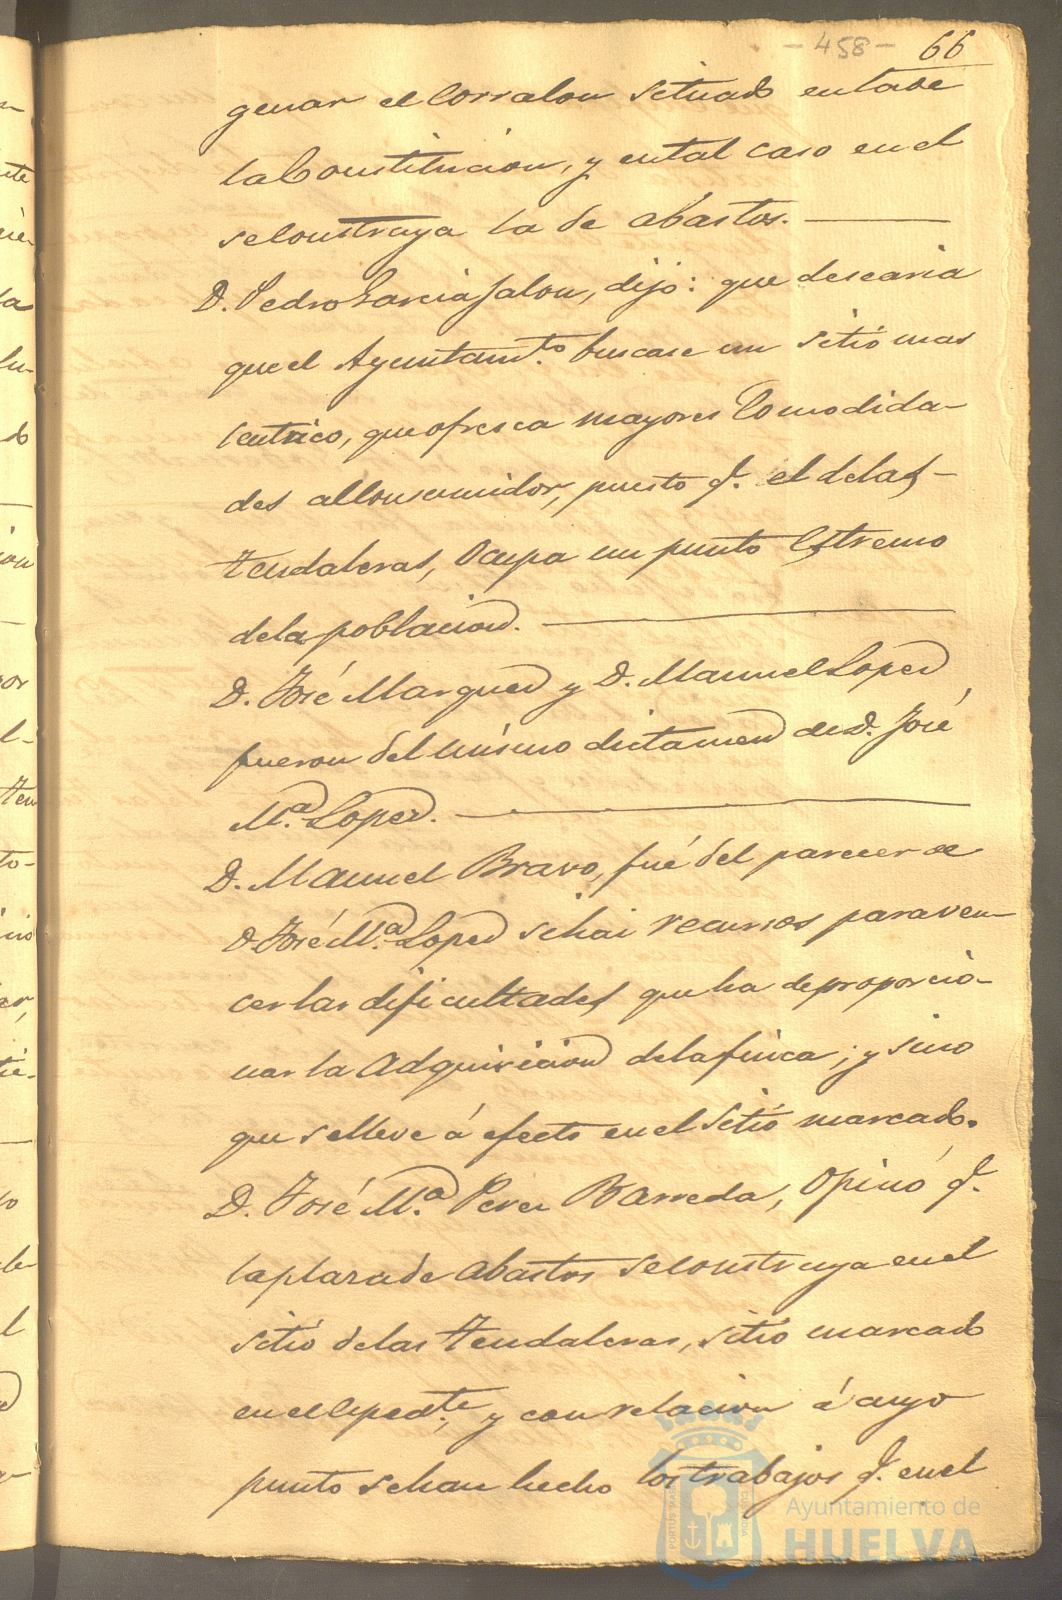 - 458 - 66
genar el Corralon situado en la de
la Constitucion, y en tal caso en el
se Construya la de abastos.
D. Pedro Garcia Jalon, dijo: que desearia
que el Ayuntam.to buscase un sitio mas
Centrico, que ofresca mayores Comodida-
des al Consumidor, puesto q.e el de las
tendaleras, Ocupa un punto Estremo
de la poblacion.
D. José Marquez y D. Manuel Lopez
fueron del mismo dictamen de D. José
M.a Lopez.
D. Manuel Bravo, fué del parecer de
D. José M.a Lopez si hai recursos para ven-
cer las dificultades que ha de proporcio-
nar la adquisicion de la finca; y sino
que se lleve á efecto en el sitio marcado.
D. José M.a Perez Barreda, Opinó q.e
la plaza de abastos se construya en el
sitio de las tendaleras, sitio marcado
en el Exped.te, y con relacion á cuyo
punto se han hecho los trabajos q.e en el
Ayuntamiento de
HUELVA